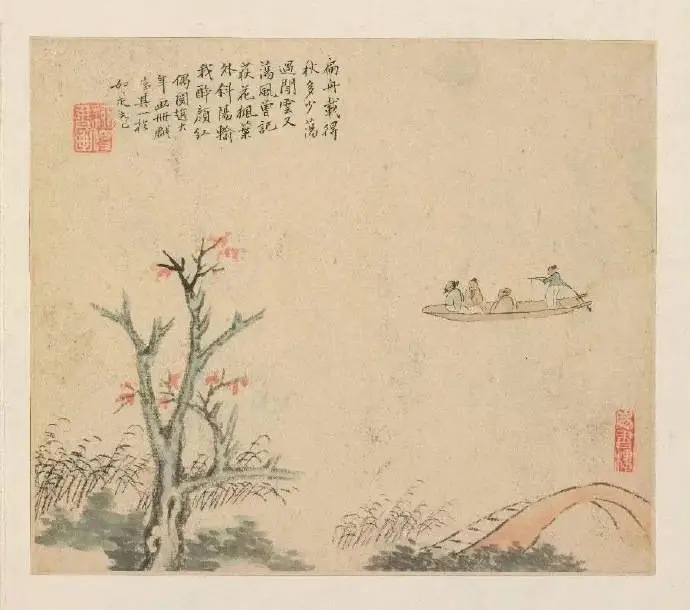 扁舟載得
秋多少蕩
過閒雲又
蕩風曾記
荻花楓葉
外斜陽輸
我醉顏紅
偶閱趙大
年画冊戲
其一
如